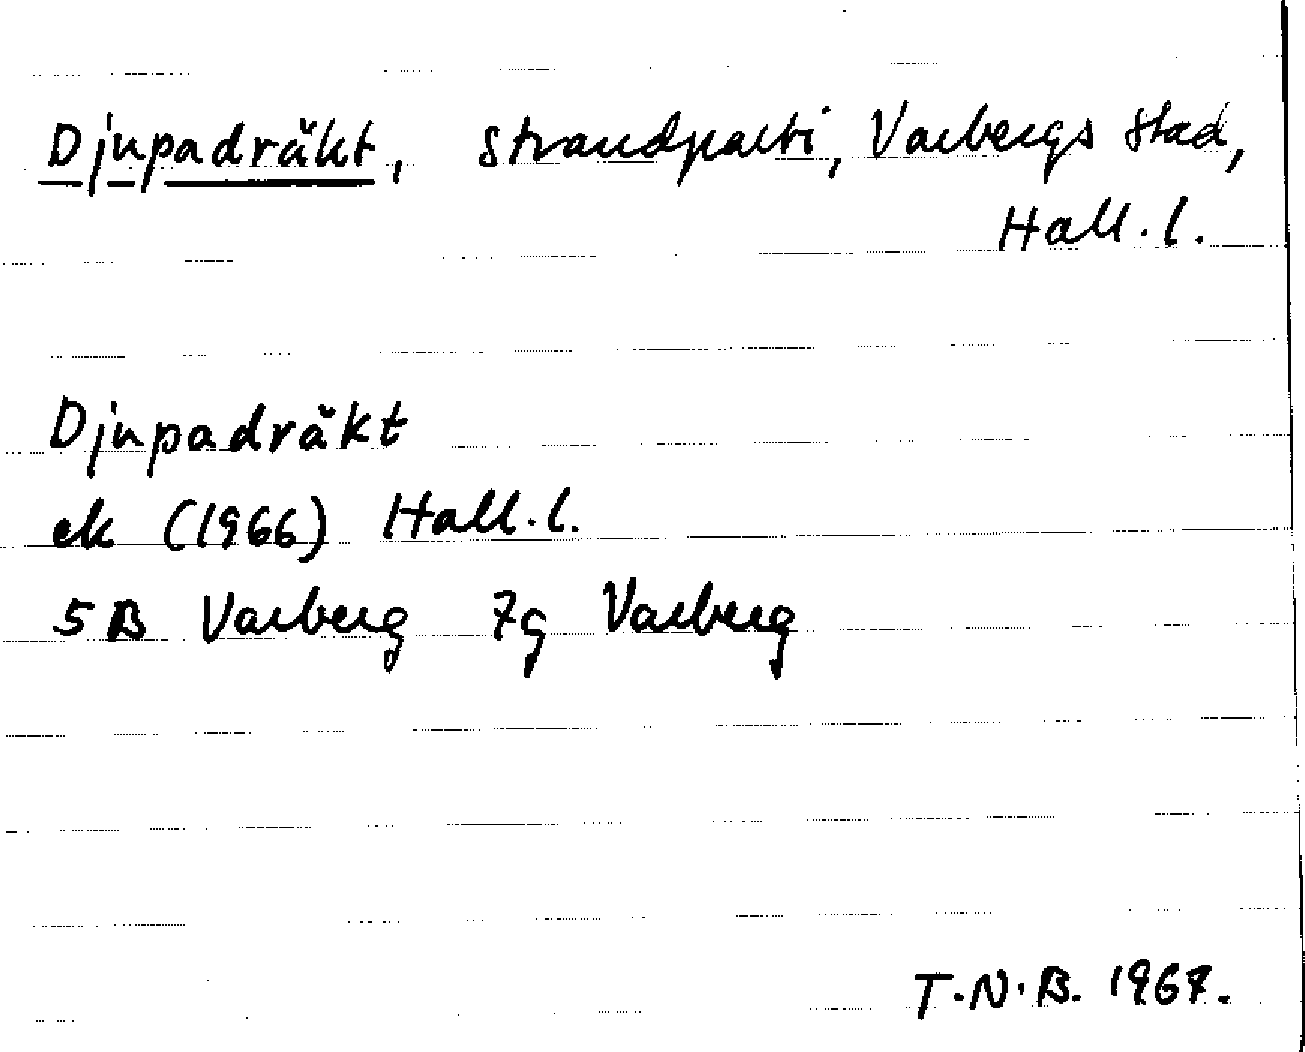 Djupadräkt, strandparti, Varbergs stad,
Hall. l.
Djupadräkt
ek (1966) Hall. l.
5B Varberg 7g Varberg
T.N.B. 1967.